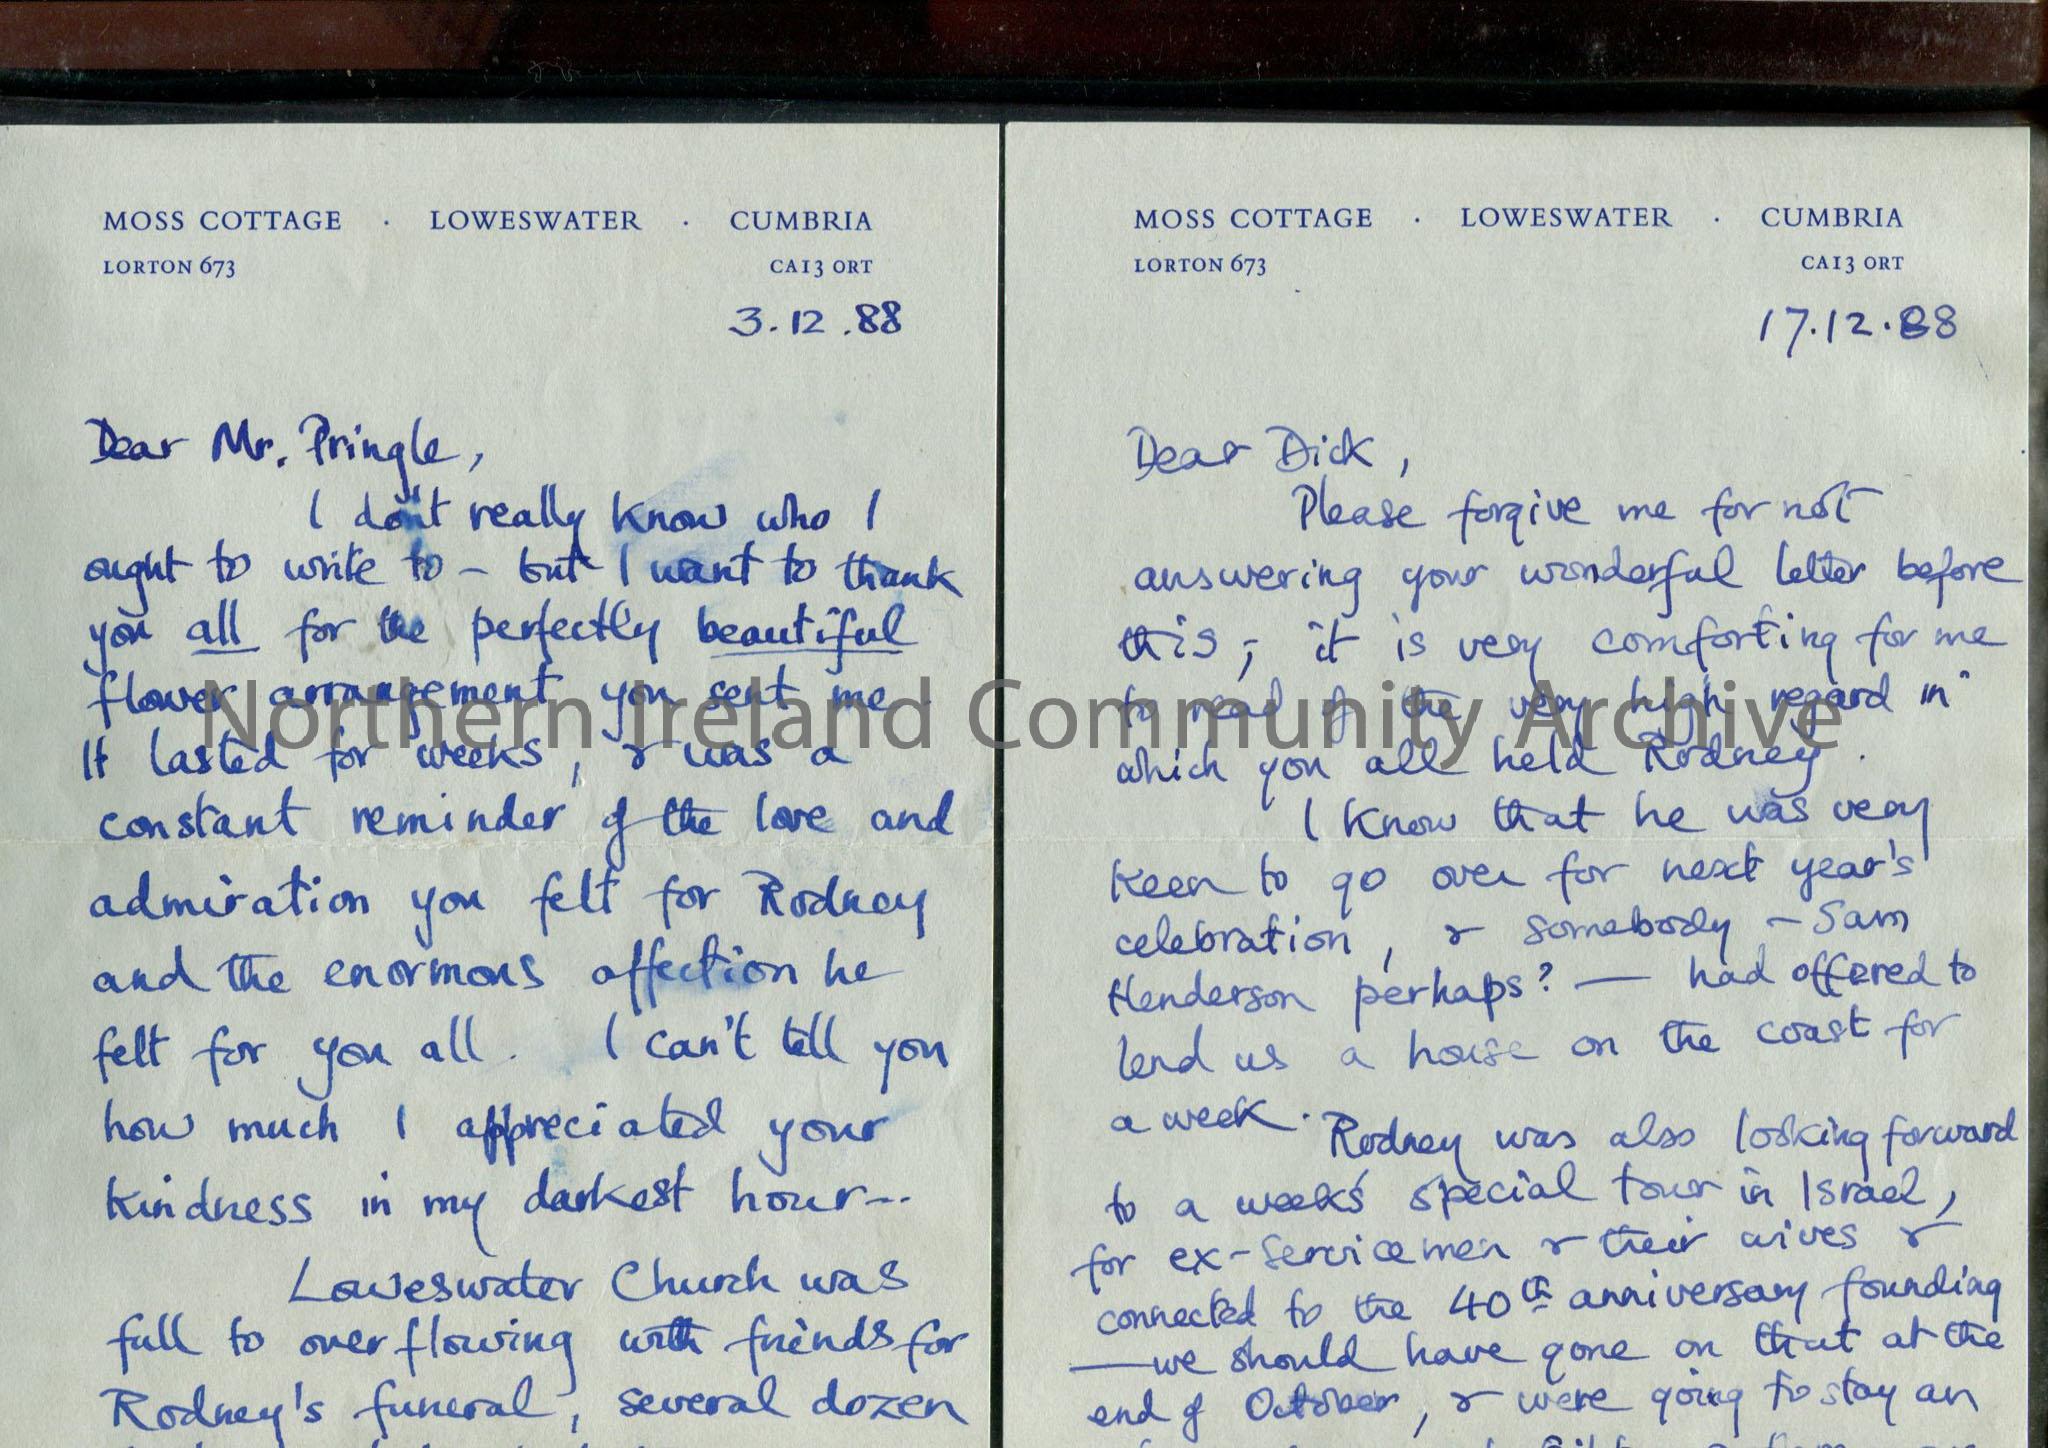 MOSS COTTAGE · LOWESWATER · CUMBRIA
LORTON 673 CA13 0RT
3.12.88
Dear Mr. Pringle,
I don't really know who I
ought to write to – but I want to thank
you all for the perfectly beautiful
flower arrangement you sent me
It lasted for weeks, & was a
constant reminder of the love and
admiration you felt for Rodney
and the enormous affection he
felt for you all. I can't tell you
how much I appreciated your
kindness in my darkest hour--
Loweswater Church was
full to overflowing with friends for
Rodney's funeral, several dozen
MOSS COTTAGE · LOWESWATER · CUMBRIA
LORTON 673 CA13 0RT
17.12.88
Dear Dick,
Please forgive me for not
answering your wonderful letter before
this; it is very comforting for me
to read of the very high regard in
which you all held Rodney.
I know that he was very
keen to go over for next year's
celebration, & somebody – Sam
Henderson perhaps? — had offered to
lend us a house on the coast for
a week.
Rodney was also looking forward
to a week's special tour in Israel,
for ex-servicemen & their wives &
connected to the 40th anniversary founding
— we should have gone on that at the
end of October, & were going to stay an
Northern Ireland Community Archive